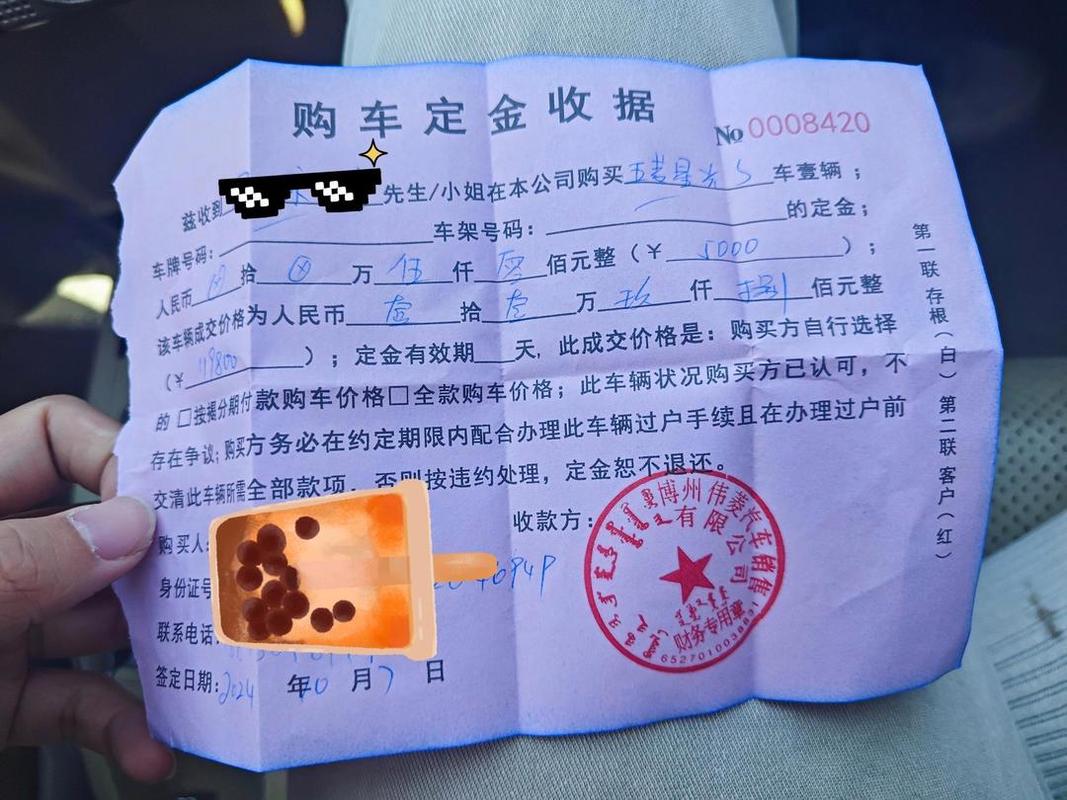 购车定金收据
No 0008420
兹收到 先生/小姐在本公司购买五菱星光S车壹辆；
车牌号码： 车架号码： 的定金；
人民币 拾 万伍仟 佰元整（￥5000）；
该车辆成交价格为人民币壹拾壹万玖仟捌佰元整
（￥119800）；定金有效期 天，此成交价格是：购买方自行选择
的 □按揭分期付款购车价格□全款购车价格；此车辆状况购买方已认可，不
存在争议；购买方务必在约定期限内配合办理此车辆过户手续且在办理过户前
交清此车辆所需全部款项。否则按违约处理，定金恕不退还。
购买人： 收款方：
身份证号
联系电话：
签定日期：2024年10月7日
第一联 存根（白） 第二联 客户（红）
博州伟菱汽车销售有限公司
财务专用章